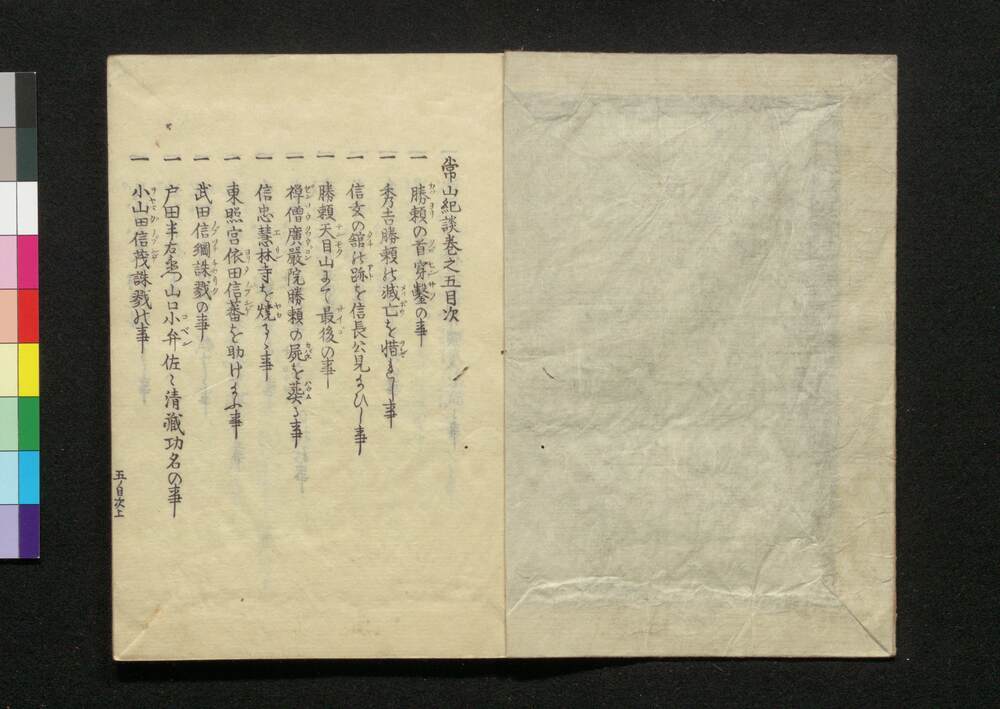 常山紀談巻之五目次
一 勝頼の首穿鑿の事
一 秀吉勝頼の滅亡を惜まれし事
一 信玄の舘の跡を信長公見給ひし事
一 勝頼天目山にて最後の事
一 禅僧廣嚴院勝頼の屍を葬る事
一 信忠慧林寺を焼るゝ事
一 東照宮依田信蕃を助け給ふ事
一 武田信綱誅戮の事
一 戸田半右衛門山口小弁佐々清藏功名の事
一 小山田信茂誅戮の事
五ノ目次上